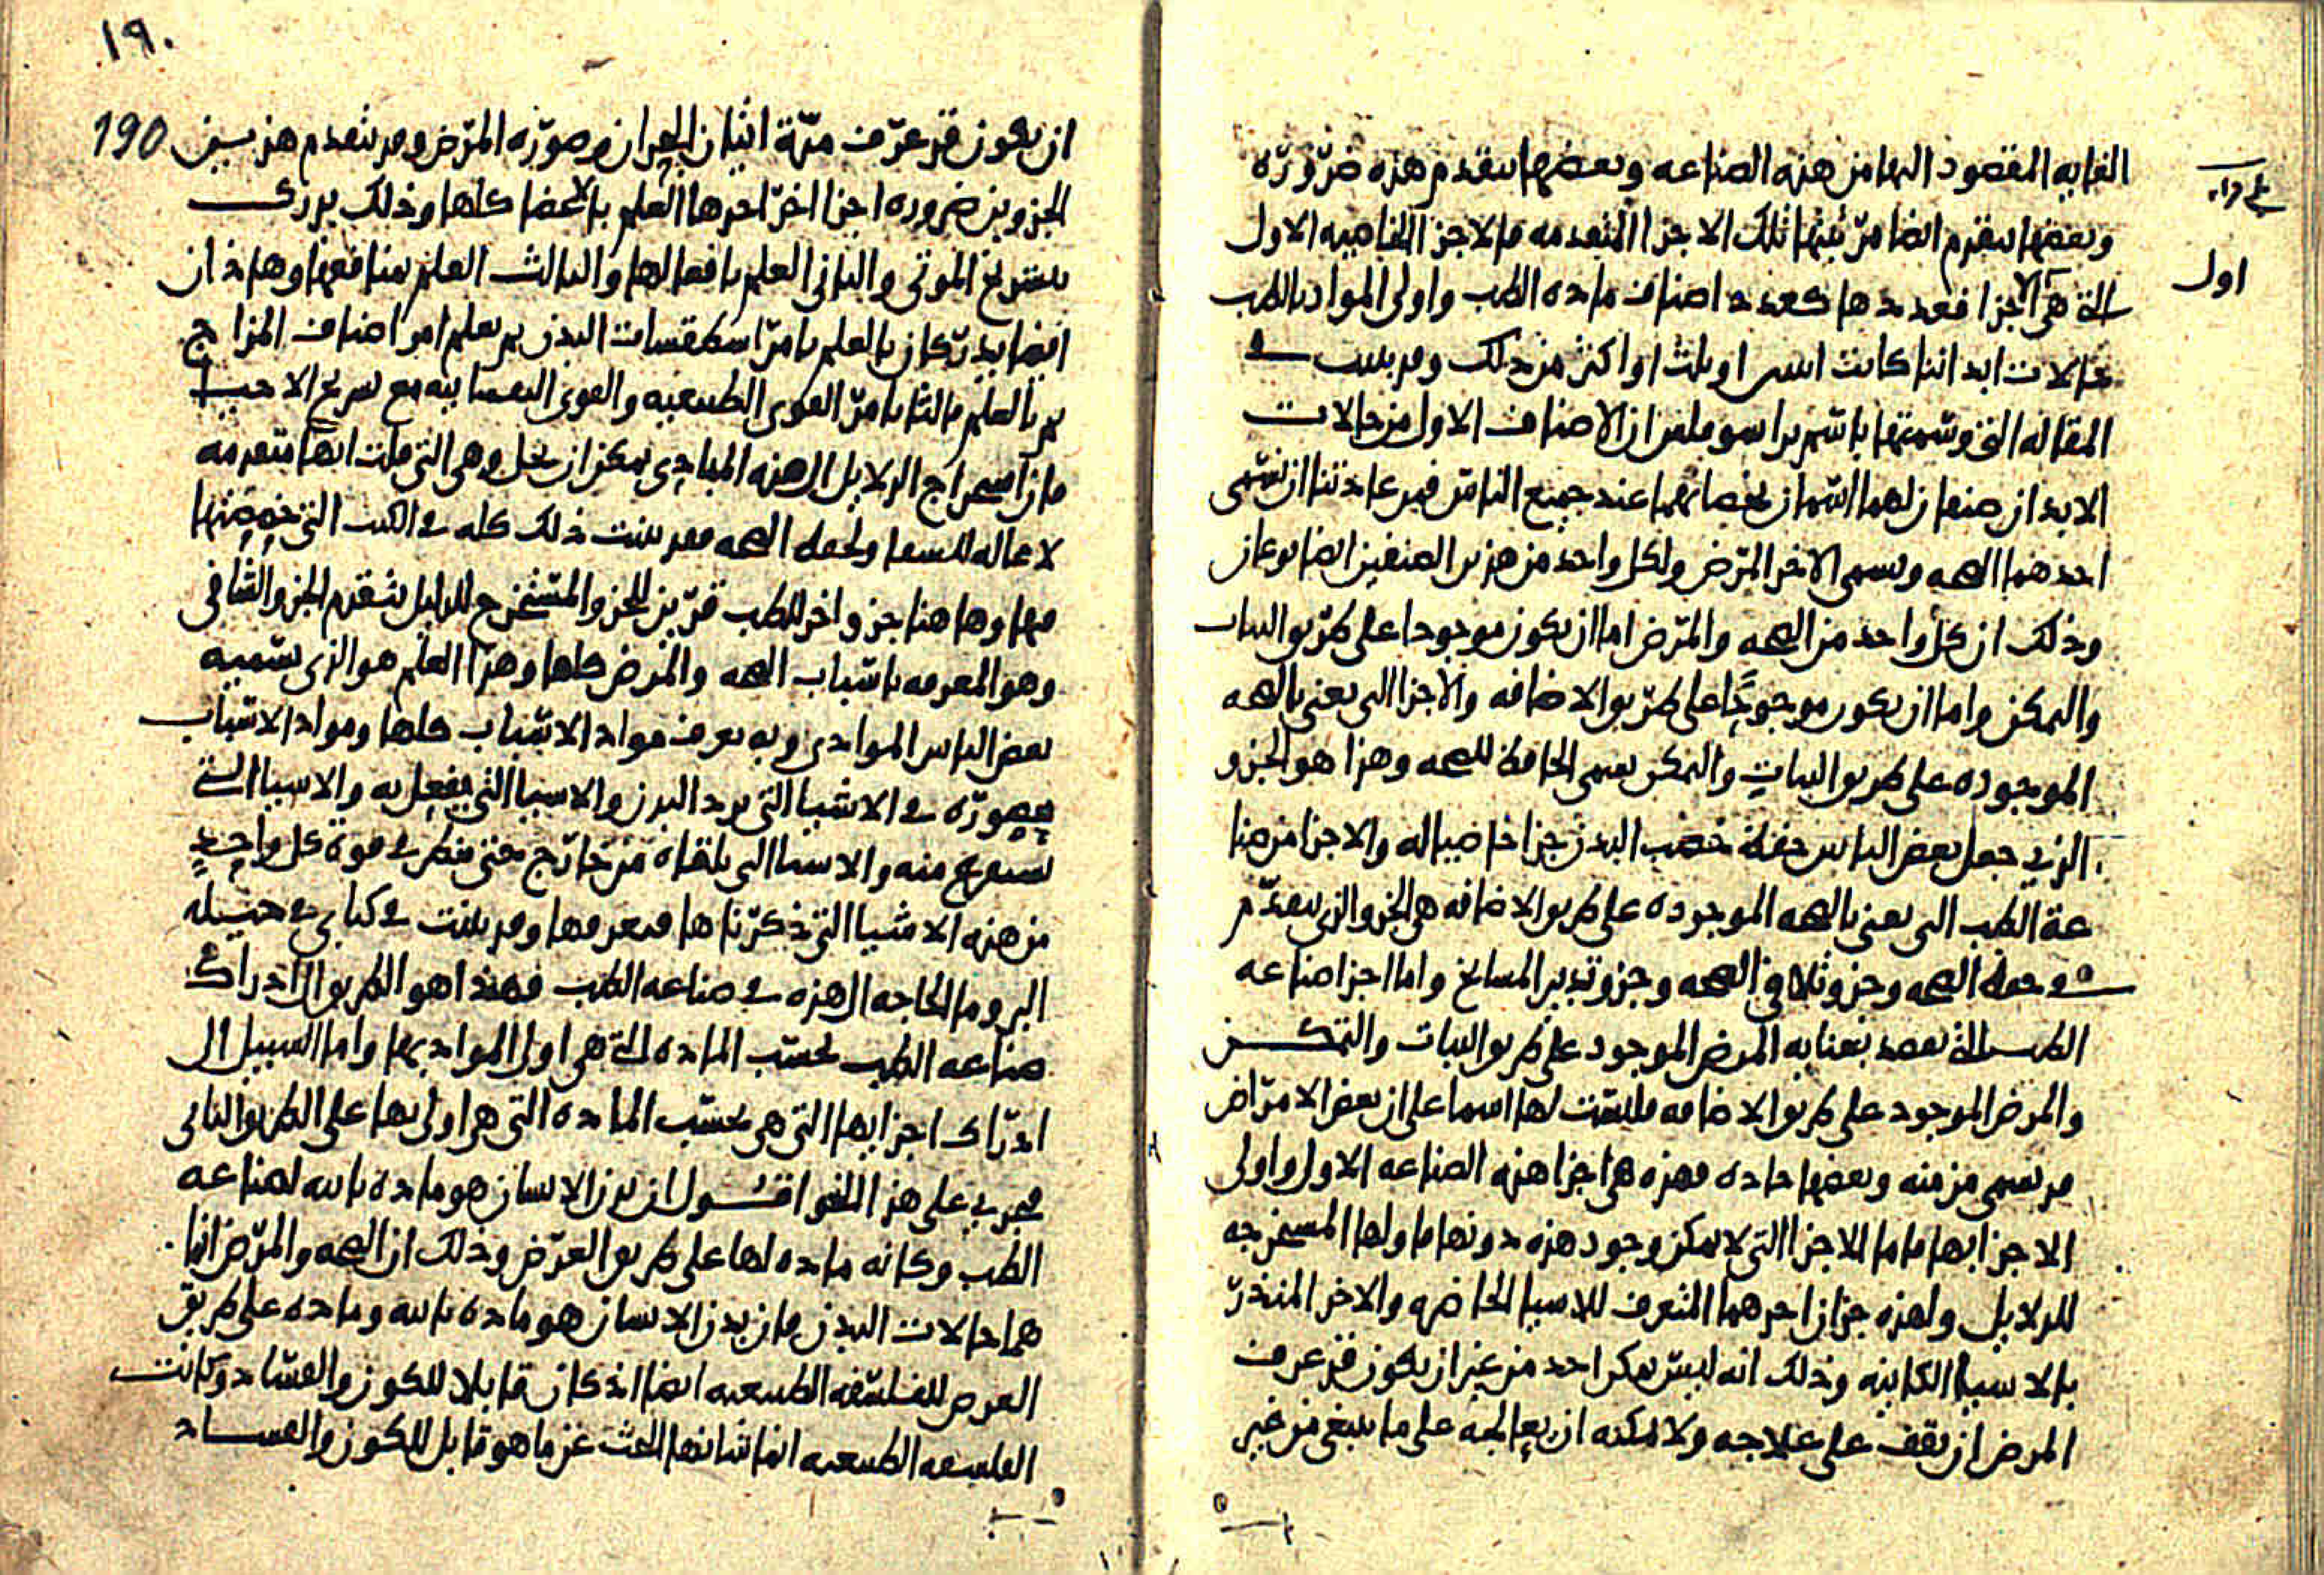 الغايه المقصود اليها من هذه الصناعه وبعضها يتقدم هذه ضرورة
وبعضها يتقدم ايضا مرتبتها تلك الاجزا المتقدمه فالاجزا الخاصيه الاول
اول
التي هي الاجزا فعددها كعدد اصناف ماده الطب واولى المواد بالطب
حالات ابداننا كانت اثنتين او ثلث او اكثر من ذلك وقد بينت في
المقاله التي وسمتها باسم فلنقر ان الاصناف الاول من حالات
الابدان صنفان لهما اسمان يخصانهما عند جميع الناس فمن عادتنا ان نسمى
احدهما الصحه ونسمى الاخر المرض ولكل واحد من هذين الصنفين ايضا نوعان
وذلك ان كل واحد من الصحه والمرض اما ان يكون موجودا على طريق الثبات
والتمكن واما ان يكون موجودا على طريق الاضافه والاجزا التى تعنى بالصحه
الموجوده على طريق الثبات والتمكن تسمى الحافظة للصحه وهذا هو الجزو
الذى جعل بعض الناس حفظة خصب البدن جزا خاصيا له والاجزا من صنا
عة الطب التى تعنى بالصحه الموجوده على طريق الاضافه هى الجزو الذى يتقدم
في حفظ الصحه وجزو تلافى الصحه وجزو تدبير المشايخ واما اجزا صناعه
الطب التي تقصد بعنايه المرض الموجود على طريق الثبات والتمكن
والمرض الموجود على طريق الاضافه فليست لها اسما على ان بعض الامراض
قد تسمى مزمنه وبعضها حاده فهذه هى اجزا هذه الصناعه الاول واولى
الاجزا بها فاما الاجزا التى لا يمكن وجود هذه دونها فاولها المستخرجه
للدلايل ولهذه جزان احدهما المتعرف للاشيا الحاضره والاخر المنذر
بالاشيا الكاينه وذلك انه ليس يمكن احد من غير ان يكون قد عرف
المرض ان يقف على علاجه ولا يمكنه ان يعالجه على ما ينبغى من غير
١٩٠
190
ان يكون قد عرف مدة اتيان البحران وصورة المرض وقد يتقدم هذين
الجزوين ضروره اجزا اخر احدها العلم بالاعضا كلها وذلك يدرك
بتشريح الموتى والثانى العلم بافعالها والثالث العلم بمنافعها وهاذان
ايضا يدركان بالعلم بامر اسطقسات البدن ثم بعلم امر اصناف المزاج
ثم بالعلم ثالثا بامر القوى الطبيعيه والقوى النفسانيه مع تشريح الاحيا
فان استخراج الدلايل الى هذه المبادى يمكن ان يحل وهى التى قلت انها متقدمه
لا محاله للشفا ولحفظ الصحه فقد بينت ذلك كله في الكتب التى خصصتها
فيها وهاهنا جزو اخر للطب قرين للجزو المستخرج للدلايل يتقدم الجزو الشافى
وهو المعرفه باسباب الصحه والمرض كلها وهذا العلم هو الذى يسميه
بعض الناس الموادى وبه يعرف مواد الاسباب كلها ومواد الاسباب
محصوره في الاشيا التى ترد البدن والاشيا التى يفعل به والاشيا التي
تستفرغ منه والاشيا التى تلقاه من خارج فمتى فكر في قوة كل واحد
من هذه الاشيا التى ذكرناها فتعرفها وقد بينت في كتابى في حيله
البرو ما الحاجه الى هذه في صناعه الطب فهذا هو الطريق الى ادراك
صناعه الطب بحسب الماده التي هى اولى المواد بها واما السبيل الى
ادراك اجزايها التى هى بحسب الماده التى هى اولى بها على الطريق الثانى
فيجرى على هذا النحو اقول ان بدن الانسان هو ماده ثانيه لصناعه
الطب وكانه ماده لها على طريق العرض وذلك ان الصحه والمرض انما
هما حالات البدن فان بدن الانسان هو ماده ثانيه وماده على طريق
العرض للفلسفه الطبيعيه ايضا اذ كان قابلا للكون والفساد وكانت
الفلسفه الطبيعيه انما شانها البحث عن ما هو قابل للكون والفساد